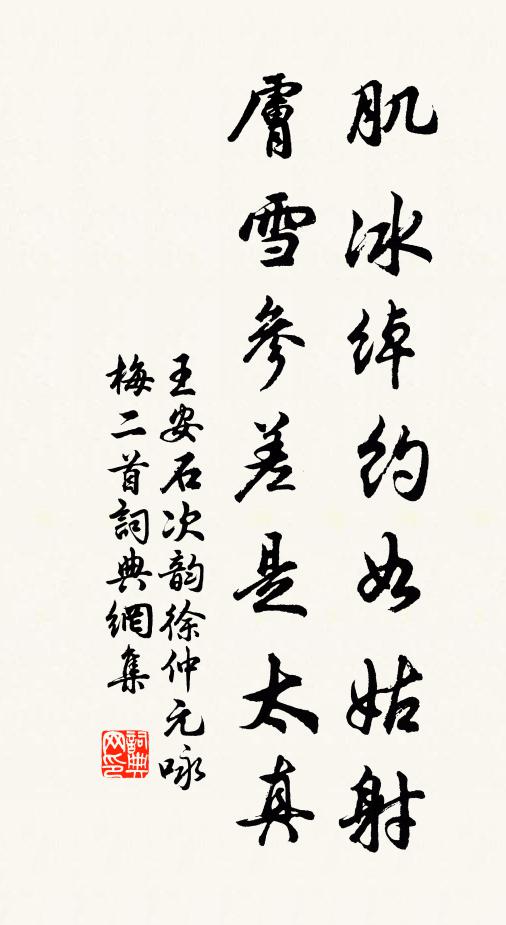 肌冰綽約如姑射
膚雪參差是太真
王安石次韵徐仲元咏
梅二首詞典網集
詞典
网印